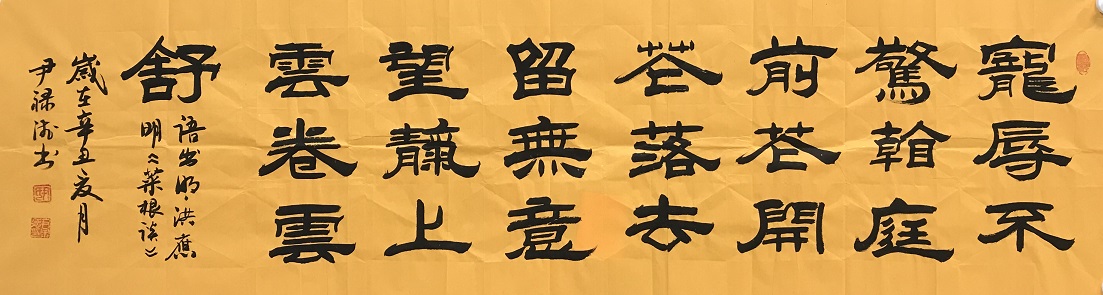 寵辱不
驚看庭
前花開
花落去
留無意
望天上
雲卷雲
舒
語出明·洪應
明《菜根談》
歲在辛丑夏月
尹禄濤书